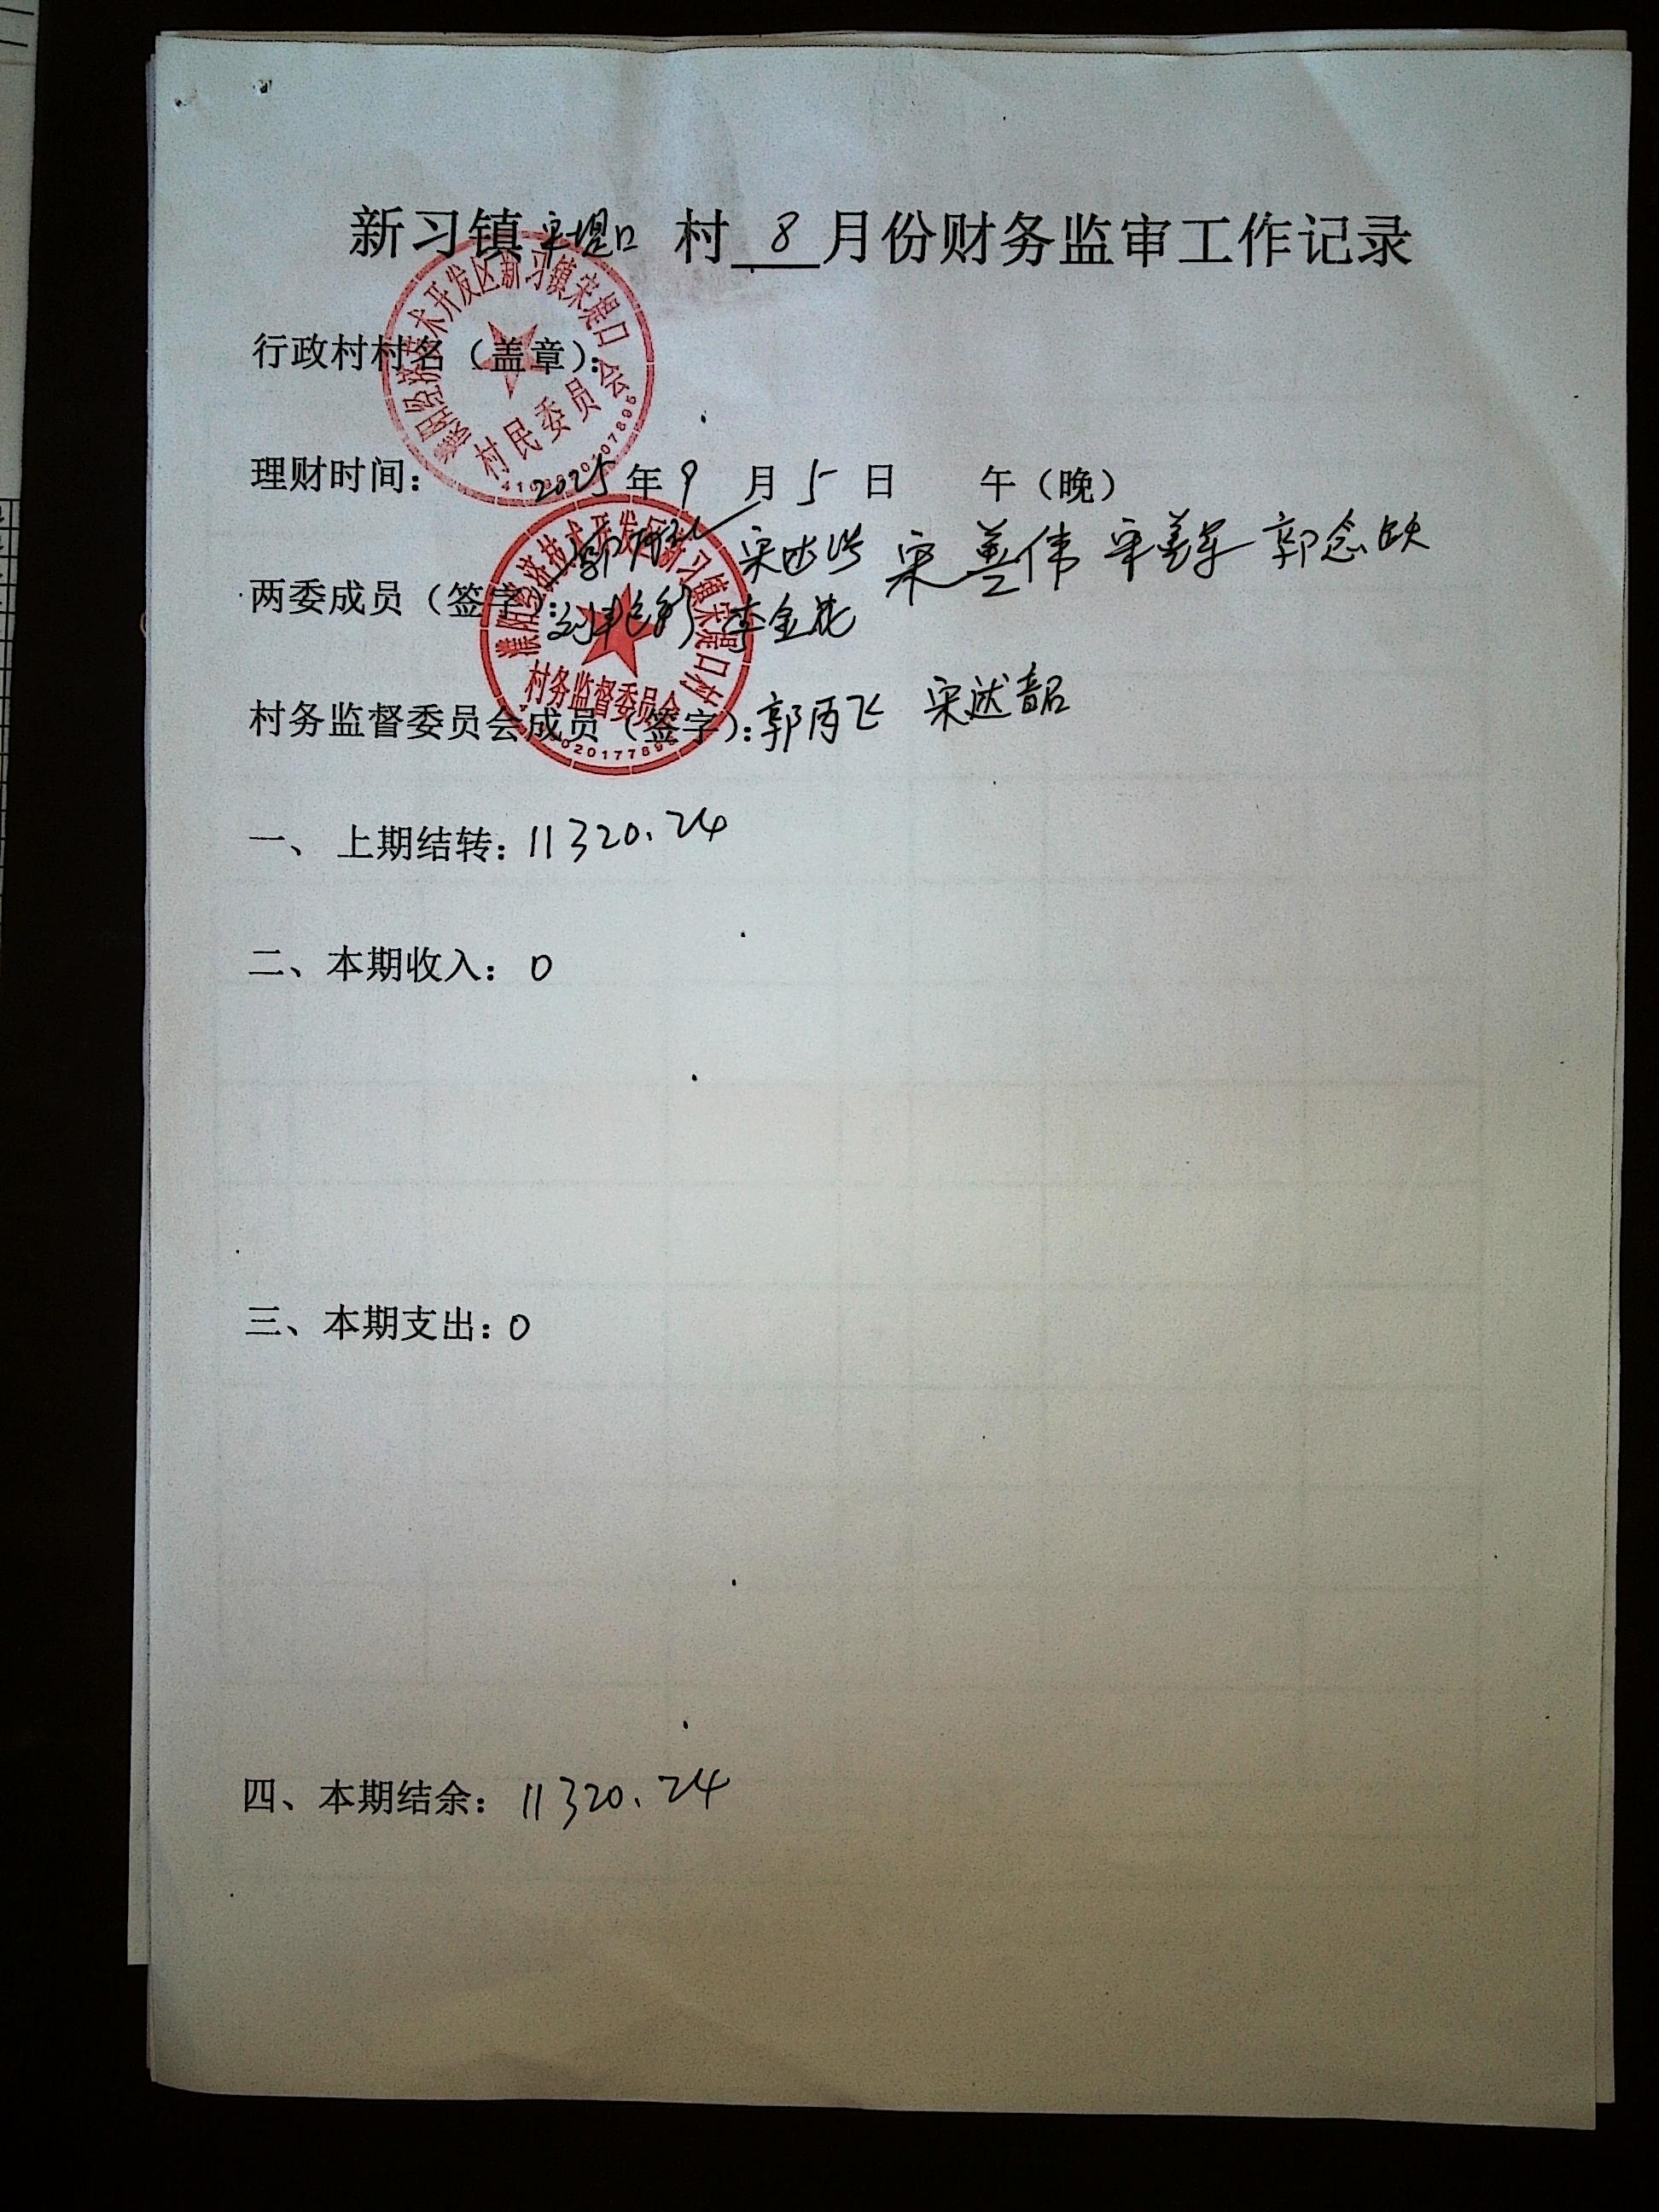 新习镇宋堤口 村 8 月份财务监审工作记录
行政村村名（盖章）：
濮阳经济技术开发区新习镇宋堤口
村民委员会
理财时间： 2025年9月5日 午（晚）
两委成员（签字）： 宋善伟 宋善军 郭念
李金花
濮阳经济技术开发区新习镇宋堤口村
村务监督委员会
村务监督委员会成员（签字）：郭丙飞 宋 韶
一、 上期结转：11320.24
二、本期收入：0
三、本期支出：0
四、本期结余：11320.24